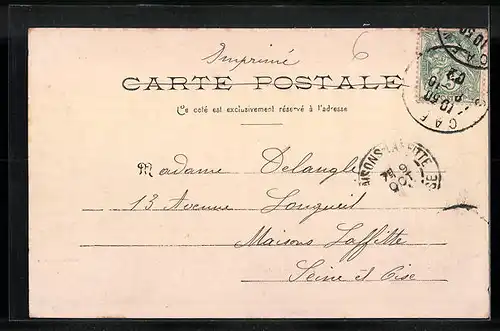 Imprimé
6
CARTE POSTALE
Ce coté est exclusivement réservé à l'adresse
Madame Delangle
13 Avenue Longueil
Maisons Laffitte
Seine et Oise